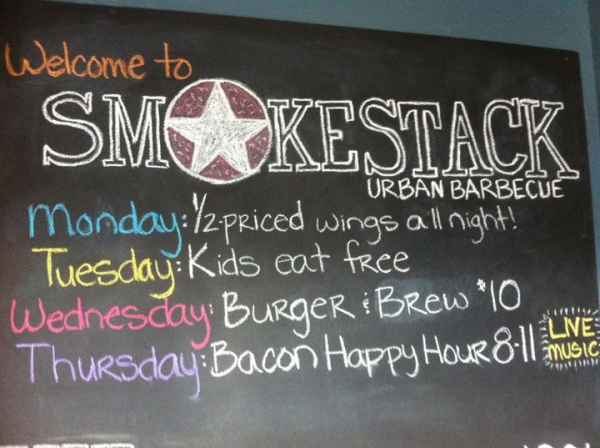 Welcome to
SMOKESTACK
URBAN BARBECUE
Monday: 1/2 priced wings all night!
Tuesday: Kids eat free
Wednesday: Burger & Brew $10
Thursday: Bacon Happy Hour 8-11 LIVE MUSIC